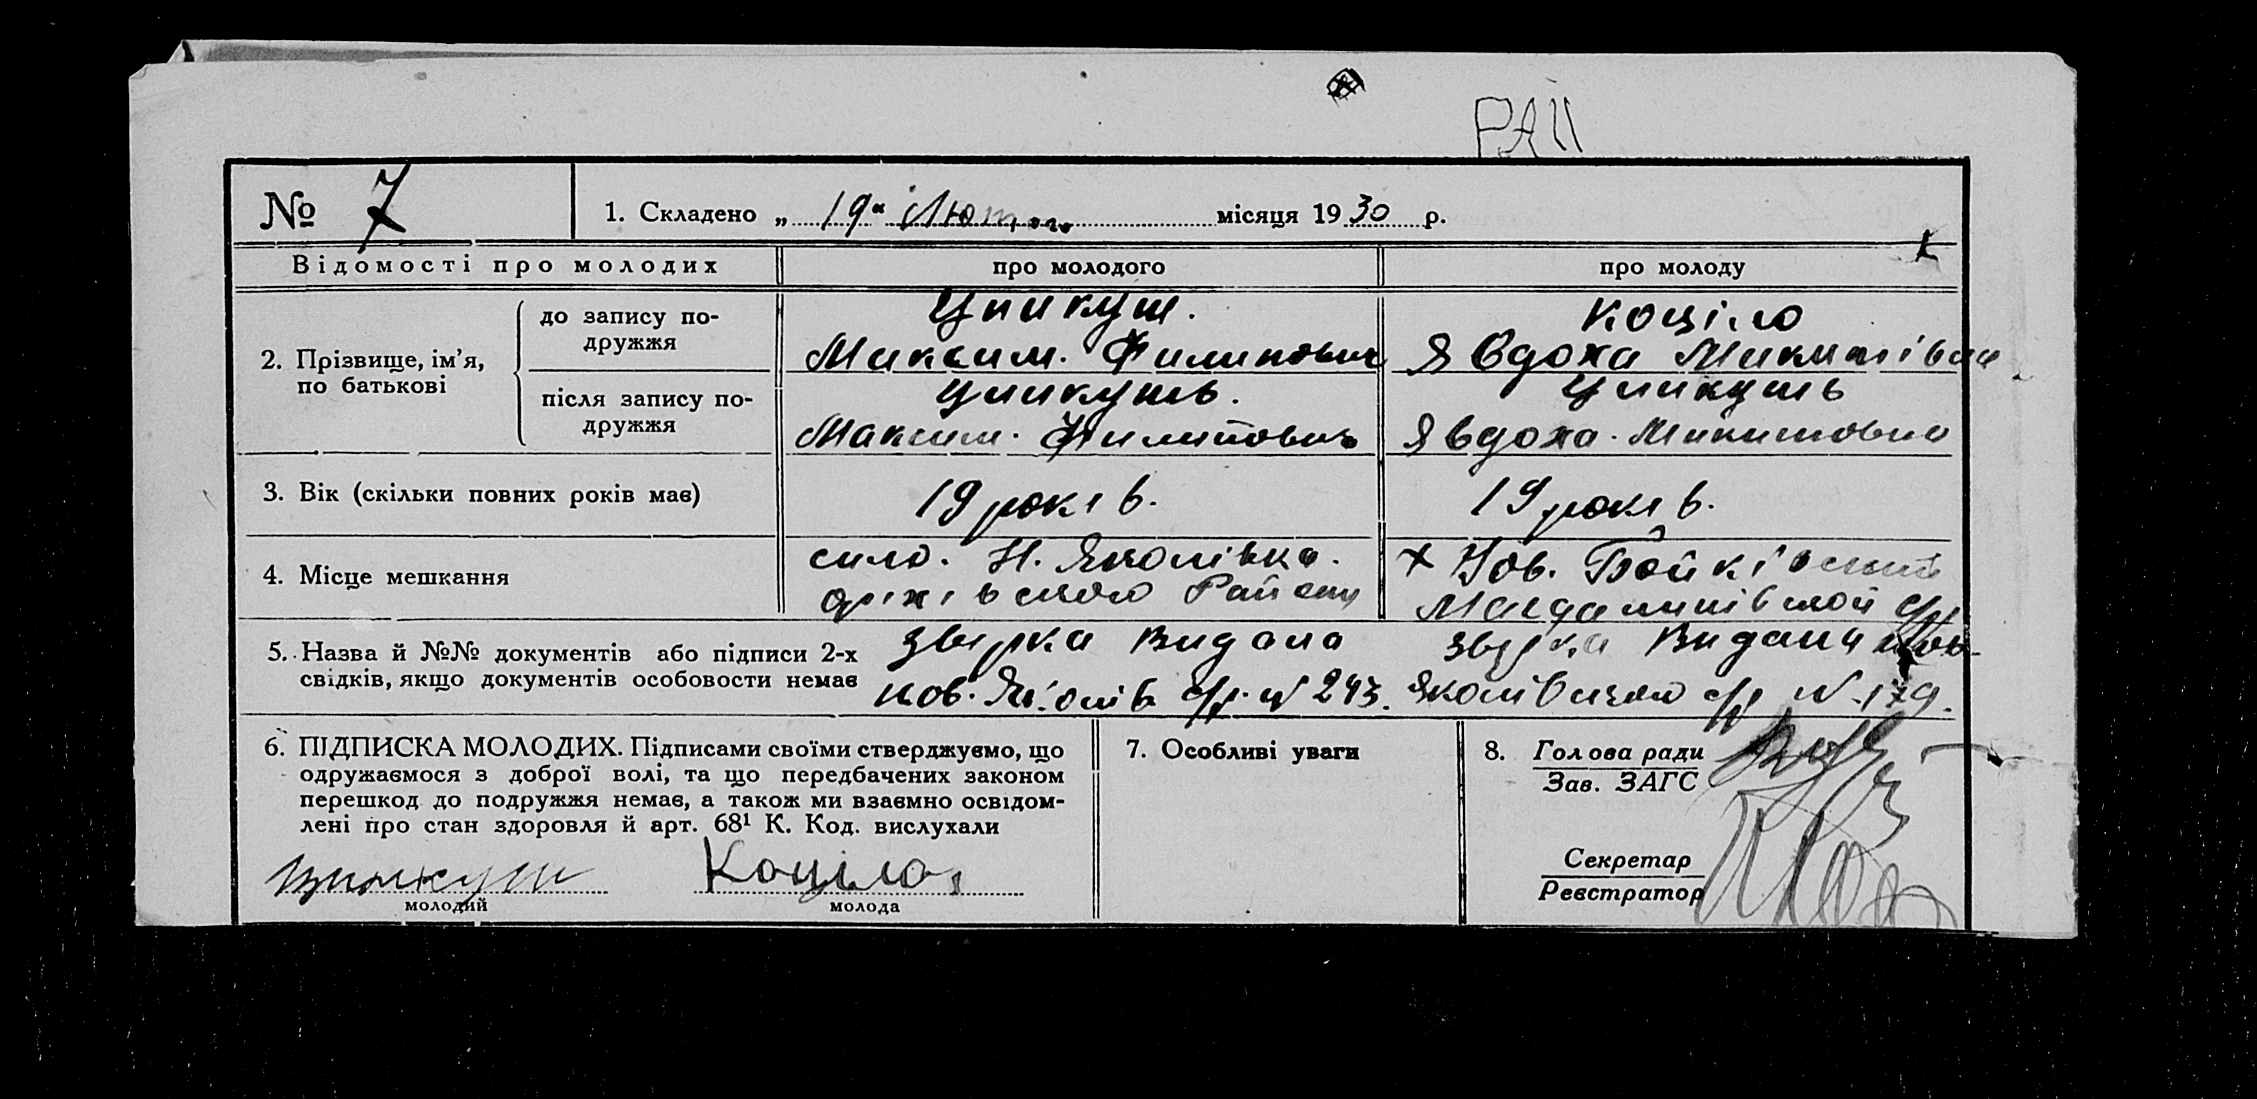 РАЦ
№ 7
1. Складено „ 19 " Лютого місяця 1930 р.
Відомості про молодих
про молодого
про молоду
2. Прізвище, ім'я, по батькові
до запису подружжя
Коціло
Максим. Филипович
Явдоха
після запису подружжя
Максим. Филипович
Явдоха. Микитовна
3. Вік (скільки повних років має)
19 років.
19 років.
4. Місце мешкання
село. Н. Яколівка.
оріхівського Району
х Нов.
5. Назва й №№ документів або підписи 2-х
свідків, якщо документів особовости немає
Звірка Видана
нов. с/р. N 243.
Звірка Видана
с/р N 179.
6. ПІДПИСКА МОЛОДИХ. Підписами своїми стверджуємо, що
одружаємося з доброї волі, та що передбачених законом
перешкод до подружжя немає, а також ми взаємно освідом-
лені про стан здоровля й арт. 68¹ К. Код. вислухали
Коціло
молодий
молода
7. Особливі уваги
8. Голова ради
Зав. ЗАГС
Секретар
Реєстратор